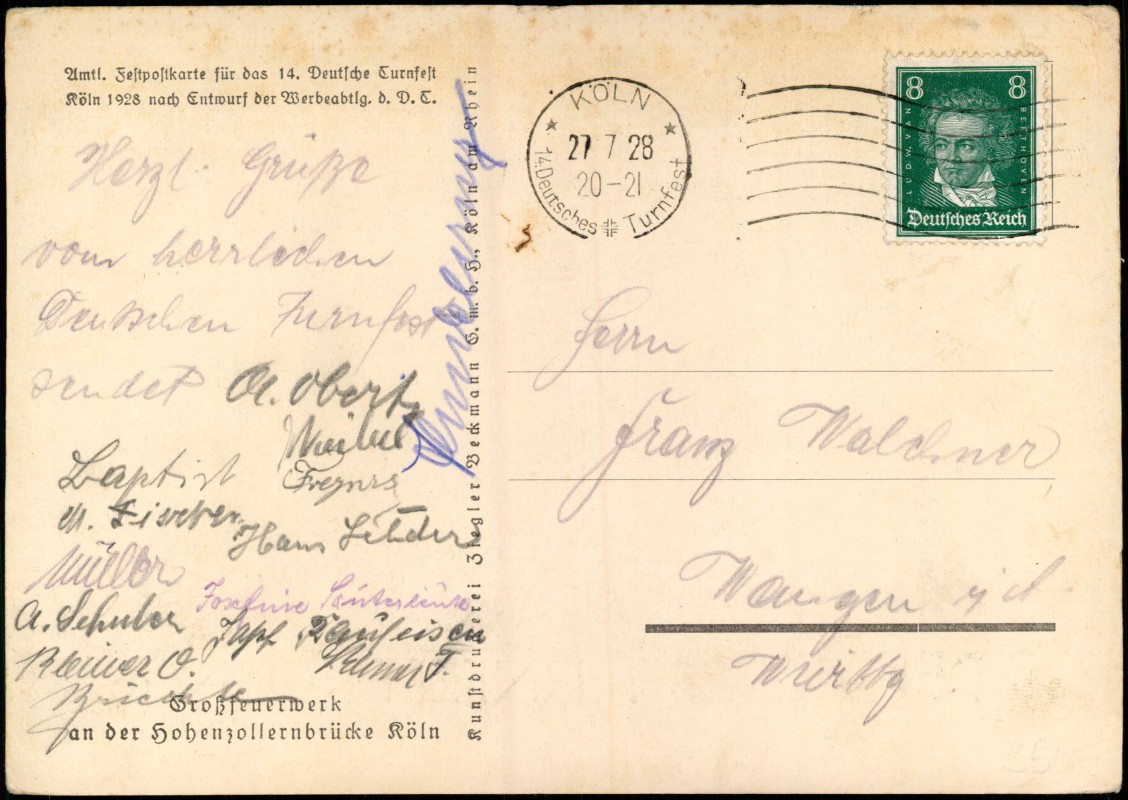 Amtl. Festpostkarte für das 14. Deutsche Turnfest
Köln 1928 nach Entwurf der Werbeabtlg. d. D. T.
Herzl. Grüße
vom herrlichen
Deutschen Turnfest
sendet A. Obert
Baptist
M. Fischer
Hans
Müller
Josefine
A. Schuler
Großfeuerwerk
an der Hohenzollernbrücke Köln
Kunstdruckerei Ziegler Beckmann G. m. b. H., Köln am Rhein
KÖLN
27 7 28
20-21
14. Deutsches Turnfest
8 8
LUDW. VAN
BEETHOVEN
Deutsches Reich
Herrn
Franz Walchner
Wangen i/A
Württbg